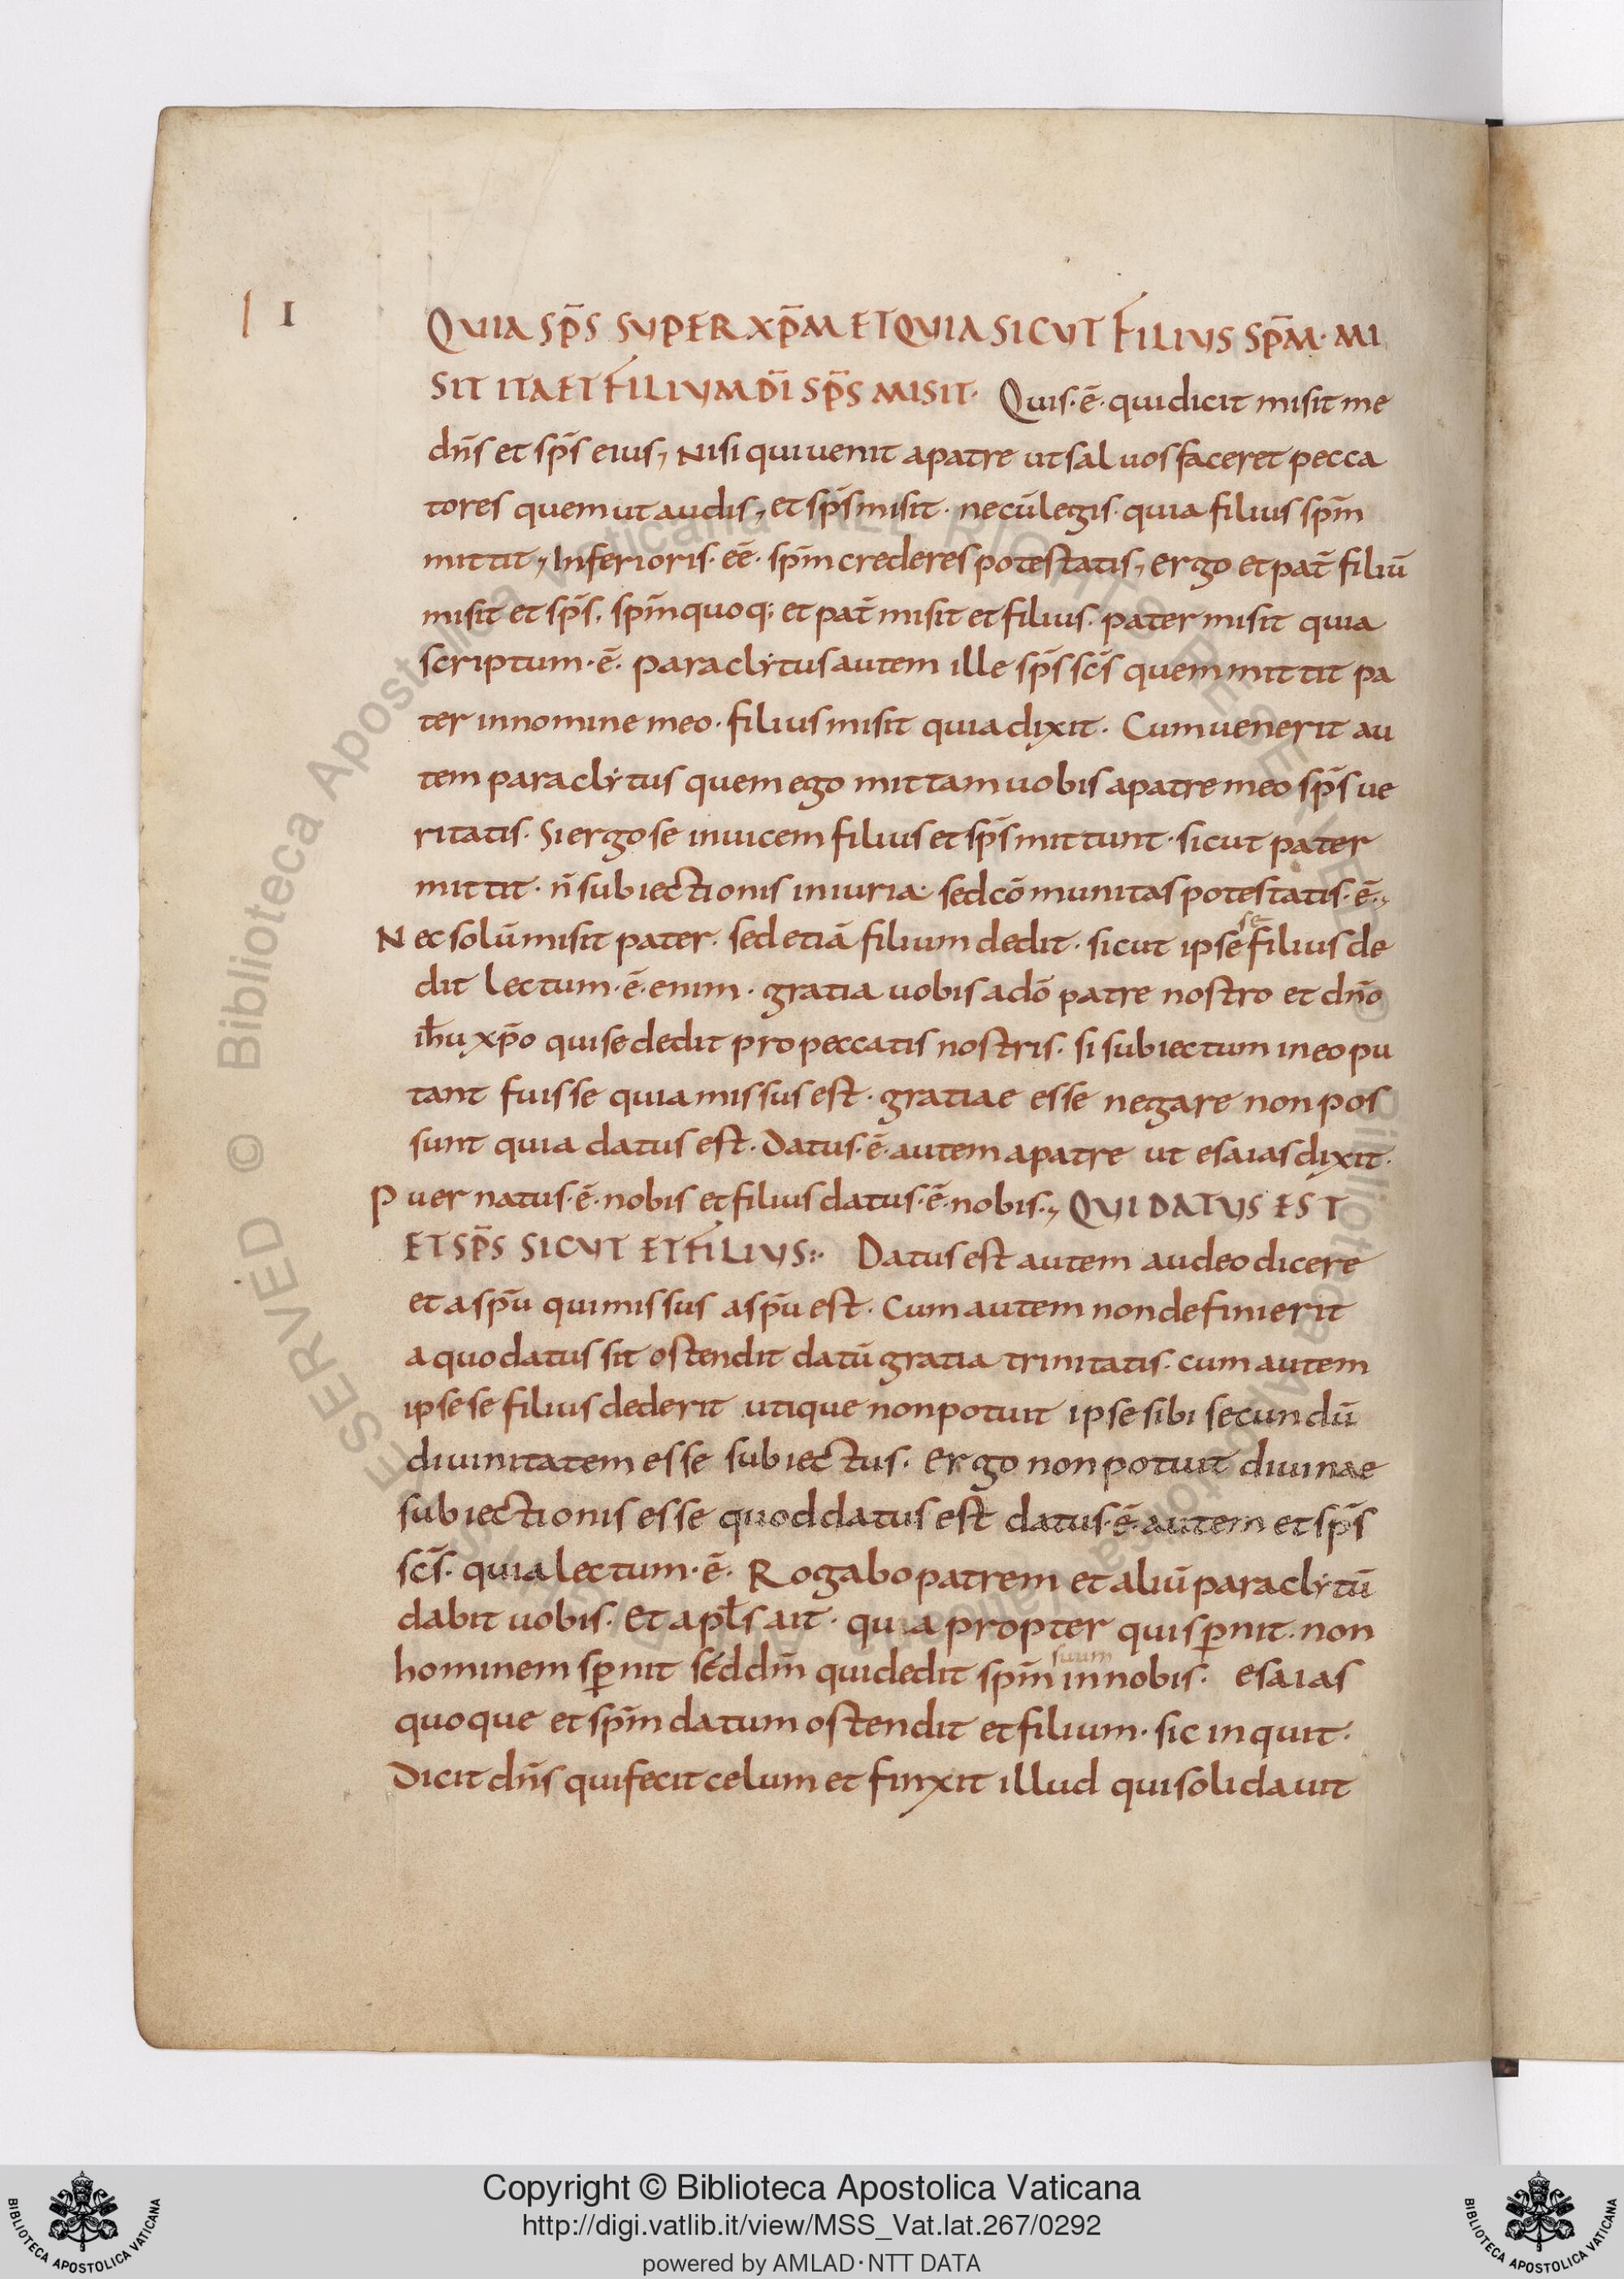 I
QUIA SP̄S SUPER XP̄M ET QUIA SICUT FILIUS SP̄M· MI
SIT ITA ET FILIUM DĪ SP̄S MISIT· Quis·ē· qui dicit misit me
dn̄s et sp̄s eius, Nisi qui uenit a patre ut saluos faceret pecca
tores quem ut audis, et sp̄s misit· ne cū legis· quia filius sp̄m
mittit, Inferioris· eē· sp̄m crederes potestatis, ergo et pat̄ filiū
misit et sp̄s, sp̄m quoq; et pat̄ misit et filius· pater misit quia
scriptum·ē· paraclytus autem ille sp̄s sc̄s quem mittit pa
ter in nomine meo· filius misit quia dixit· Cum uenerit au
tem paraclytus quem ego mittam uobis a patre meo sp̄s ue
ritatis· Si ergo se inuicem filius et sp̄s mittunt· sicut pater
mittit· n̄ subiectionis iniuria· sed cōmunitas potestatis·ē·,
Nec solū misit pater· sed etiā filium dedit· sicut ipse sē filius de
dit lectum·ē·enim· gratia uobis a dō patre nostro et dn̄o
ih̄u xp̄o qui se dedit pro peccatis nostris· si subiectum in eo pu
tant fuisse quia missus est· gratiae esse negare non pos
sunt quia datus est· Datus·ē·autem a patre ut esaias dixit·
Puer natus·ē·nobis et filius datus·ē·nobis·, QUI DATUS EST
ET SP̄S SICUT ET FILIUS:· Datus est autem audeo dicere
et a sp̄u qui missus a sp̄u est· Cum autem non definierit
a quo datus sit ostendit datū gratia trinitatis· cum autem
ipse se filius dederit utique non potuit ipse sibi secundū
diuinitatem esse subiectus· ergo non potuit diuinae
subiectionis esse quod datus est datus·ē·autem et sp̄s
sc̄s· quia lectum·ē· Rogabo patrem et aliū paraclytū
dabit uobis· Et apl̄s ait· quia propter qui sp̄nit· non
hominem sp̄nit sed dm̄ qui dedit sp̄m suum in nobis· esaias
quoque et sp̄m datum ostendit et filium· sic inquit·
Dicit dn̄s qui fecit celum et finxit illud qui solidauit
© Biblioteca Apostolica Vaticana
Copyright © Biblioteca Apostolica Vaticana
http://digi.vatlib.it/view/MSS_Vat.lat.267/0292
powered by AMLAD·NTT DATA
BIBLIOTECA APOSTOLICA VATICANA
BIBLIOTECA APOSTOLICA VATICANA